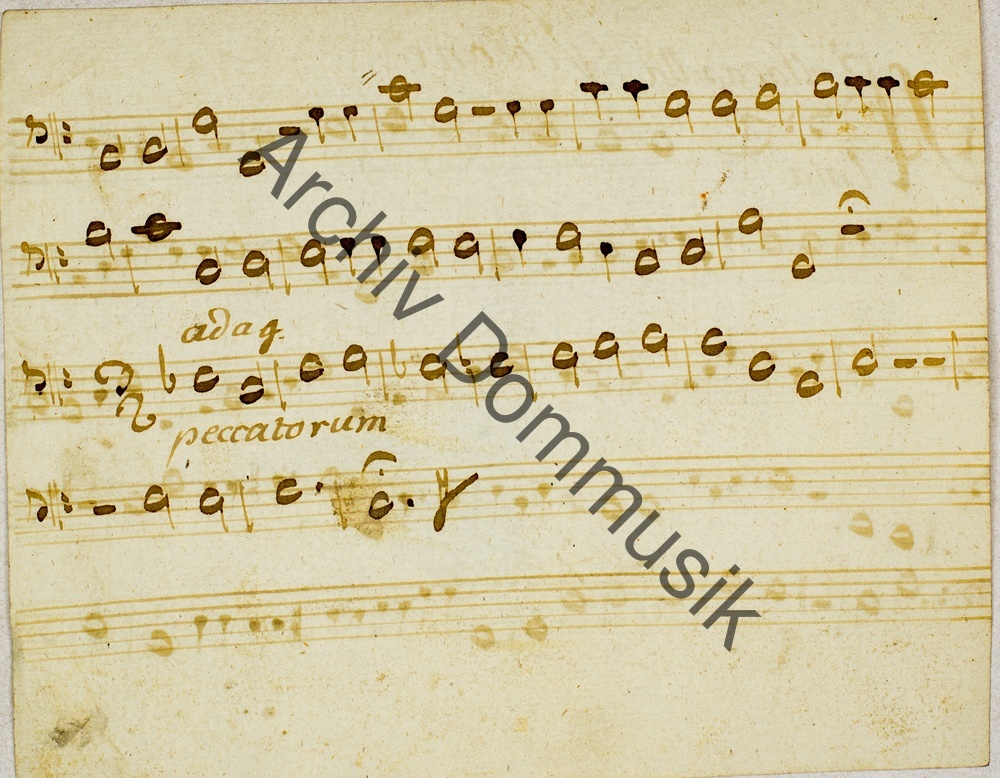 adag.
peccatorum
Archiv Dommusik